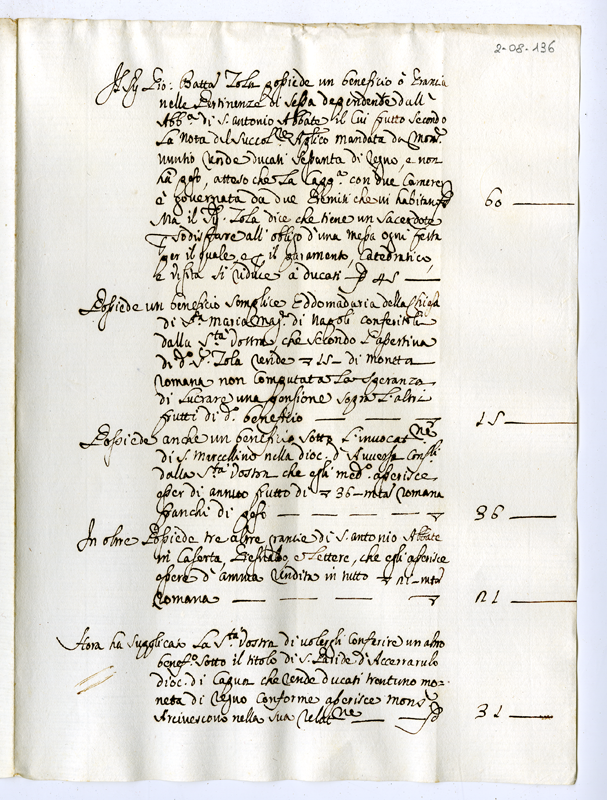 2-08-136
Il Sig. Gio: Batta Tola possiede un beneficio ò Grancia
nelle Pertinenze di Sessa dependente dall'
Abb.a di S. Antonio Abbate il cui frutto secondo
la nota del Succoll.re Apl.ico mandata da Mons.r
Nuntio rende ducati sessanta di Regno, e non
ha peso, atteso che la Capp.a con due Camere
è governata da due Eremiti che vi habitano 60
Ma il Sig. Tola dice che tiene un Sacerdote
p sodisfare all'obligo d'una messa ogni festa
per il quale, e p il paramento, Catedratico,
e visita si riduce à ducati 45
Possiede un beneficio semplice Eddomadaria della Chiesa
di S.ta Maria Mag.re di Napoli conferitoli
dalla S.tà Vostra, che secondo l'assertiva
di d.o S. Tola rende 15 di moneta
romana non computata la speranza
di lucrare una pensione sopra l'altri
frutti di d.o beneficio 15
Possiede anche un beneficio sotto l'invocat.ne
di S. Marcellino nella dioc. d'Aversa
dalla S.tà Vostra che egli med.o asserisce
esser di annuo frutto di 36 m.ta romana
franchi di peso 36
In oltre Possiede tre altre Grancie di S. Antonio Abbate
in Caserta, e Lettere, che egli asserisce
essere d'annua rendita in tutto 21 m.ta
romana 21
Hora ha supplicato la S.tà Vostra di volergli conferire un altro
benef.o sotto il titolo di S. d'Accerrarulo
dioc. di Capua che rende ducati trentuno mo-
neta di Regno conforme asserisce mons.r
Arcivescovo nella sua relat.ne 31